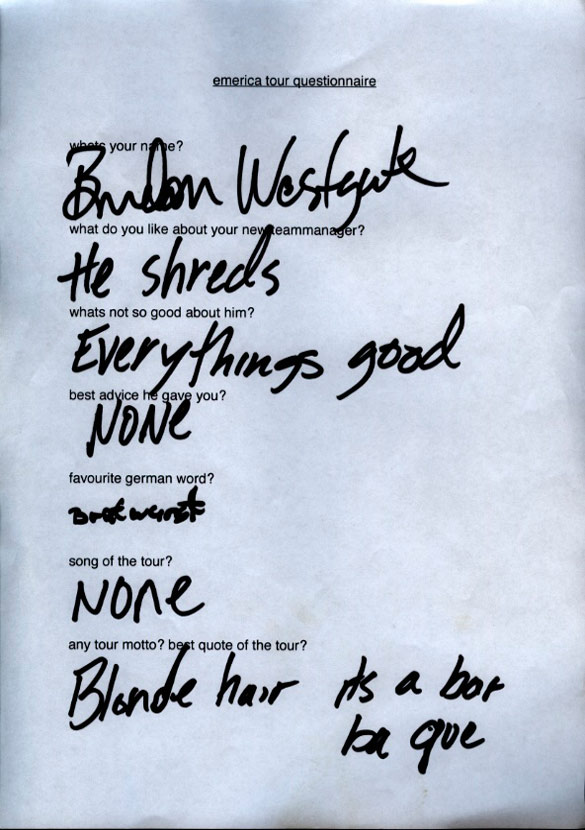 emerica tour questionnaire
whats your name?
Brandon Westgate
what do you like about your new teammanager?
He shreds
whats not so good about him?
Everythings good
best advice he gave you?
NONE
favourite german word?
Bratwurst
song of the tour?
NONE
any tour motto? best quote of the tour?
Blonde hair its a bar
ba que